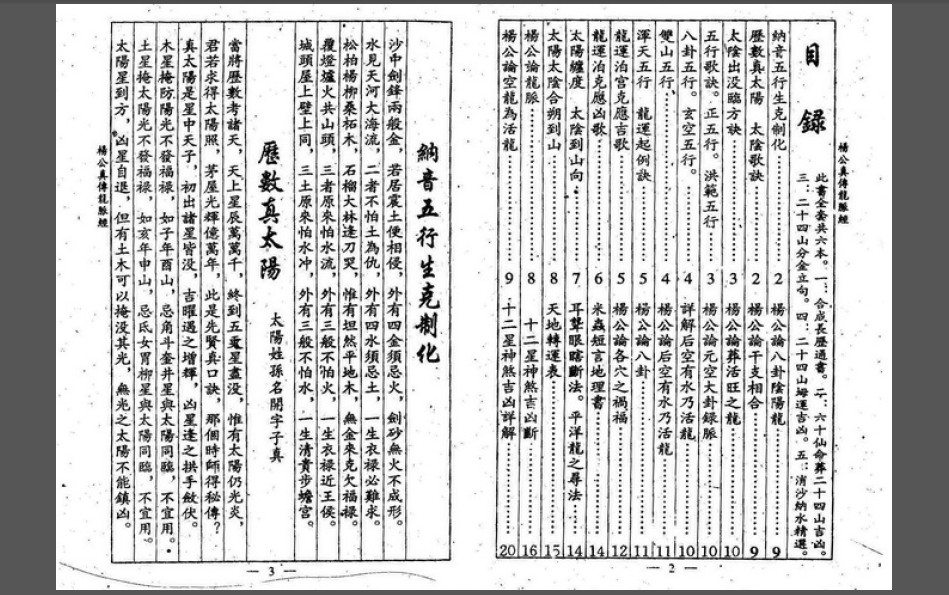 楊公真傳龍脈經
目錄
此書全套共六本。一、合成長歷通書。二、六十仙命葬二十四山吉凶。
三、二十四山分金立句。四、二十四山坳運吉凶。五、消沙納水精選。
納音五行生克制化………2
歷數真太陽 太陰歌訣………2
太陰出没臨方訣………3
五行歌訣。正五行。洪範五行………3
八卦五行。玄空五行。………4
雙山五行………4
渾天五行 龍運起例訣………5
龍運泊宮克應吉歌………5
龍運泊克應凶歌………6
太陽纏度 太陰到山向………7
太陽太陰合朔到山………8
楊公論龍脈………8
楊公論空龍為活龍………9
楊公論八卦陰陽龍………9
楊公論干支相合………9
楊公論葬活旺之龍………10
楊公論元空大卦錄脈………10
詳解后空有水乃活龍………10
楊公論后空有水乃活龍………11
楊公論八卦………11
楊公論各穴之禍福………12
米蟲短言地理書………14
耳聾眼瞎斷法。平洋龍之尋法………14
天地轉運表………15
十二星神煞吉凶斷………16
十二星神煞吉凶詳解………20
— 2 —
納音五行生克制化
沙中劍鋒兩般金，若居震土便相侵，外有四金須忌火，劍砂無火不成形。
水見天河大海流，二者不怕土為仇，外有四水須忌土，一生衣禄必難求。
松柏楊柳桑柘木，石榴大林逢刀哭，惟有坦然平地木，無金來克欠福禄。
覆燈爐火共山頭，三者原來怕水流，外有三般不怕火，一生衣禄近王侯。
城頭屋上壁上同，三土原來怕水冲，外有三般不怕水，一生清貴步蟾宫。
歷數真太陽
太陽姓孫名開字子真
當將歷數考諸天，天上星辰萬萬千，終到五更星盡没，惟有太陽仍光炎，
君若求得太陽照，茅屋光輝億萬年，此是先賢真口訣，那個時師得秘傳？
真太陽是星中天子，初出諸星皆没，吉曜遇之增輝，凶星逢之拱手斂伏。
木星掩防陽光不發福禄，如子年酉山，忌角斗奎井星與太陽同臨，不宜用。
土星掩太陽光不發福禄，如亥年申山，忌氐女胃柳星與太陽同臨，不宜用。
太陽星到方，凶星自退，但有土木可以掩没其光，無光之太陽不能鎮凶。
楊公真傳龍脈經
— 3 —